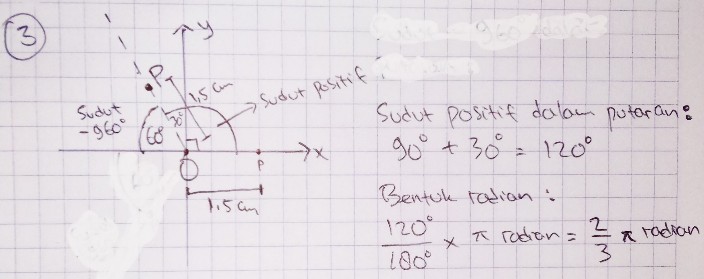 3
y
P
1,5 cm
Sudut positif
Sudut
-960°
60°
30°
x
O
P
1.5 cm
Sudut positif dalam putaran:
90° + 30° = 120°
Bentuk radian :
120°/180° × π radian = 2/3 π radian